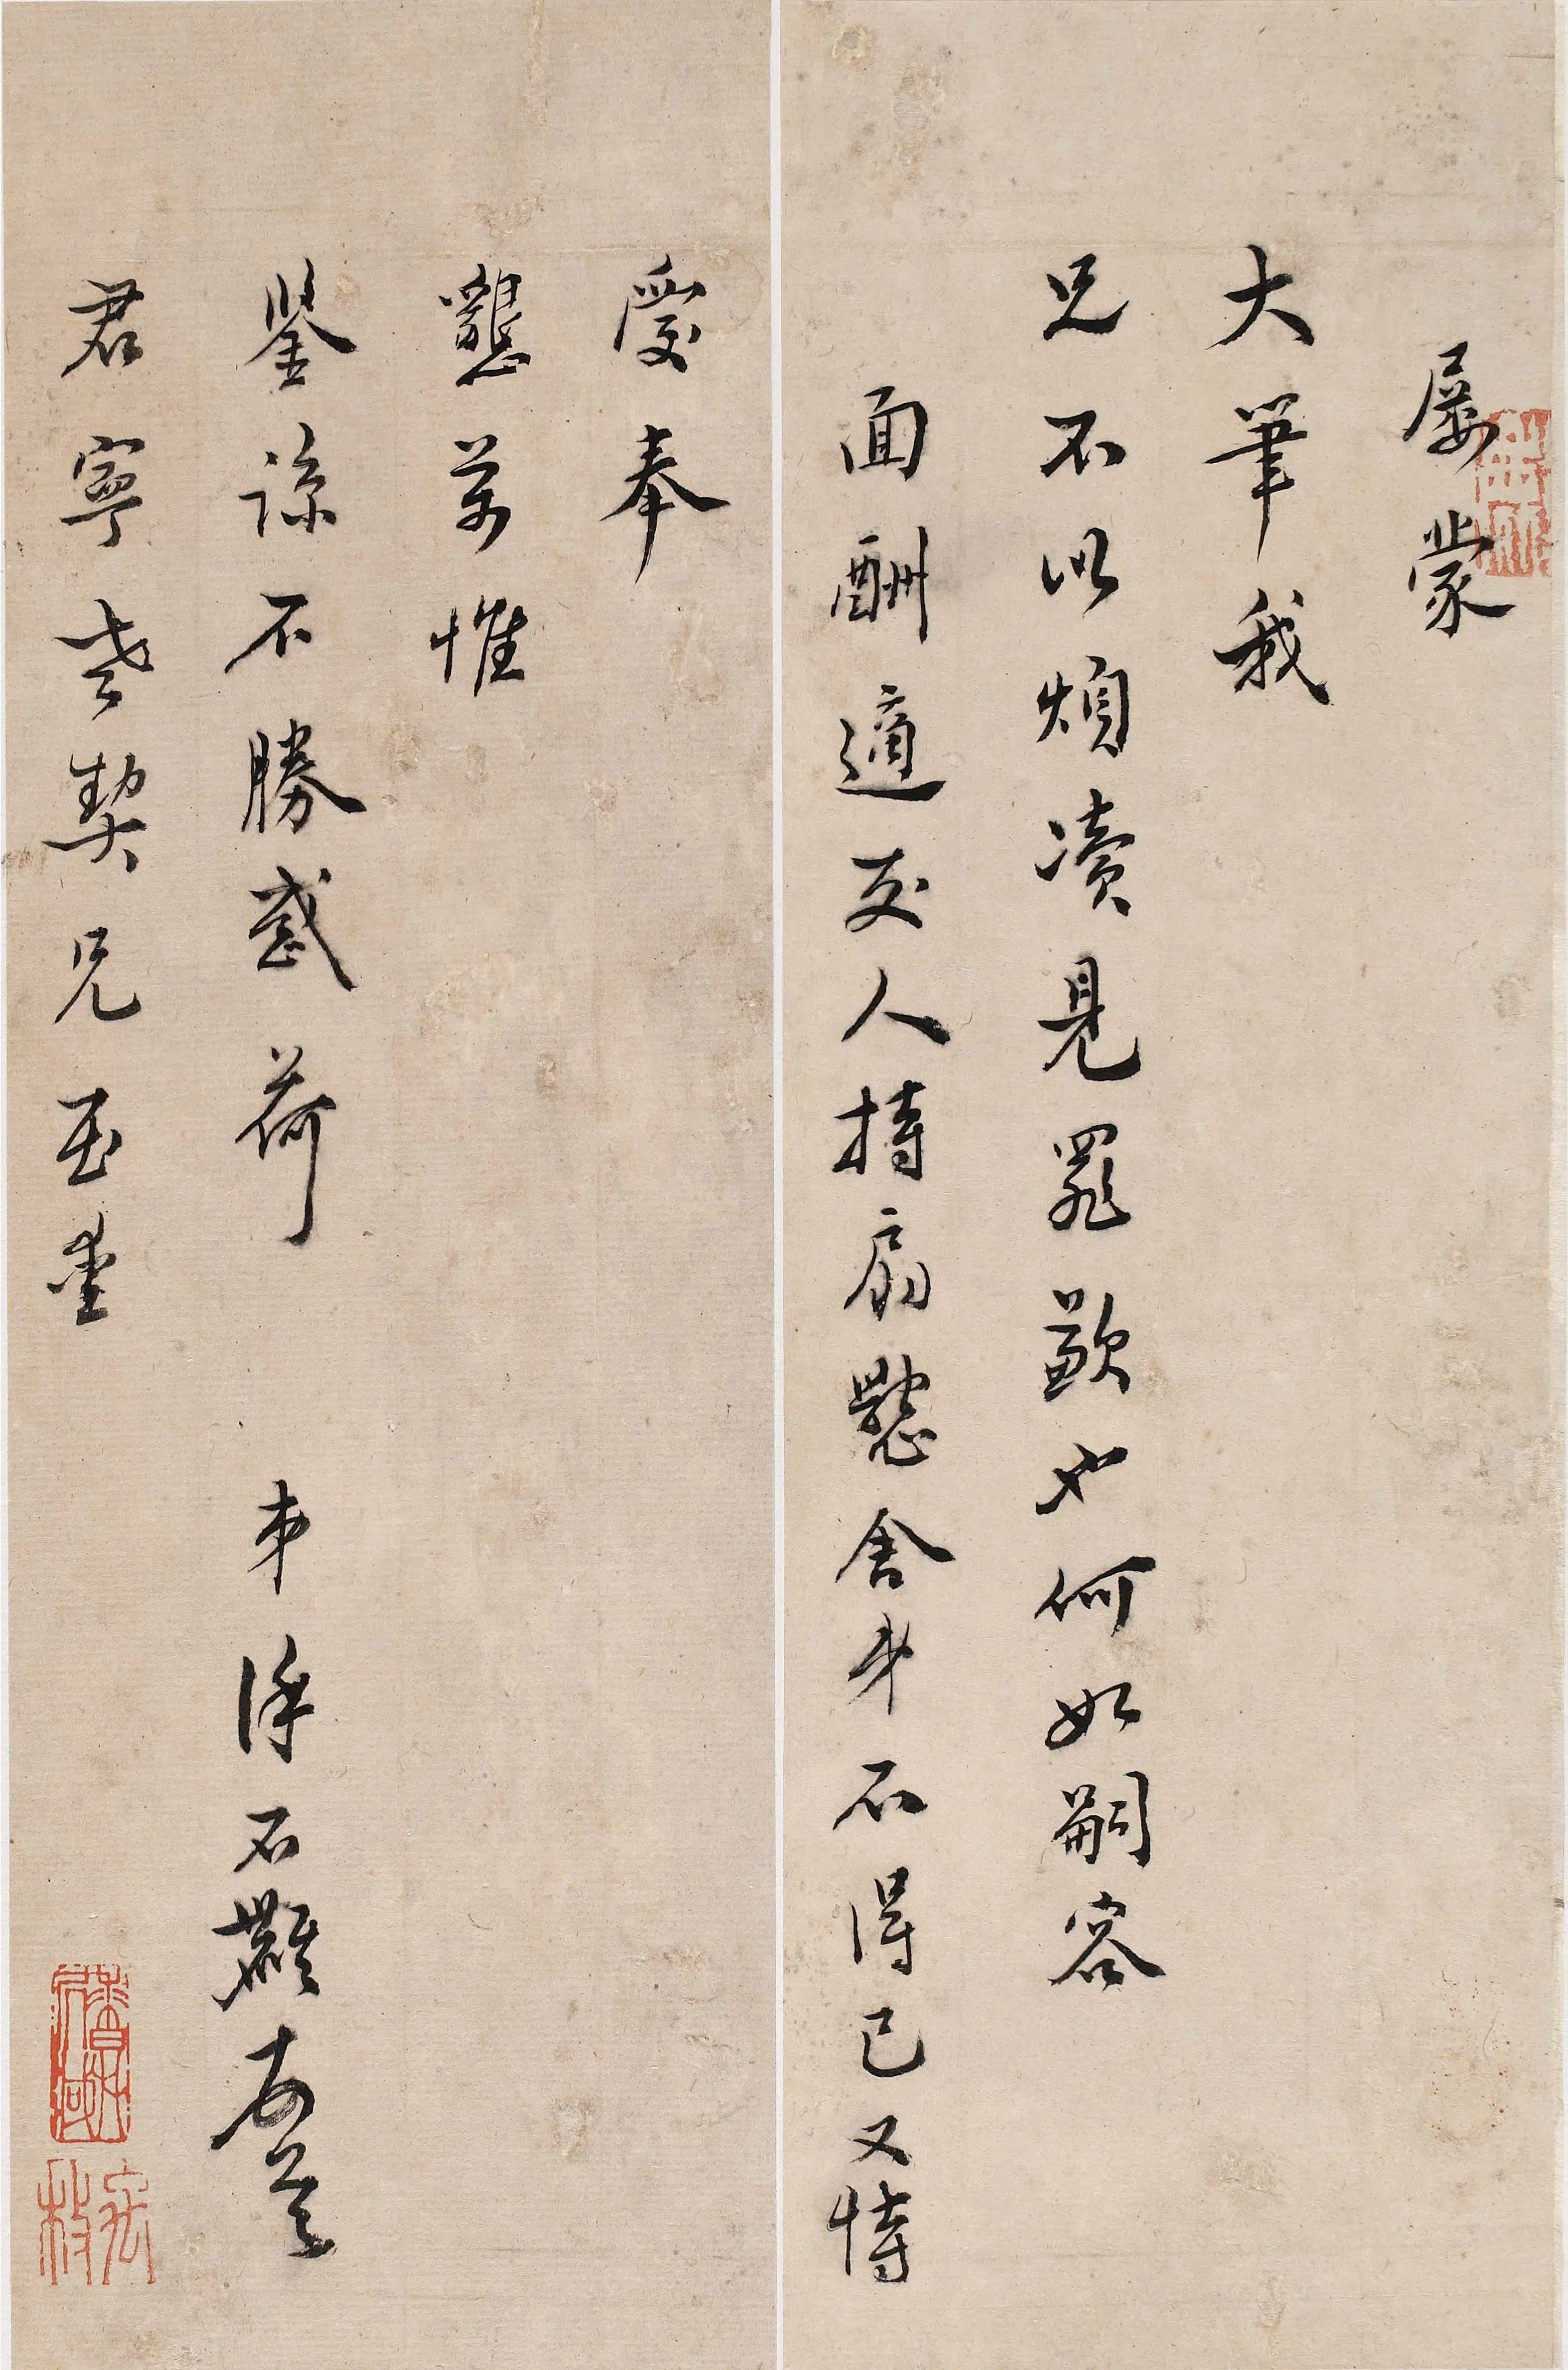 屢蒙
大筆我
兄不以煩凟見罪歟也何如嗣容
面酬適友人持扇懇舍弟不得已又恃
愛奉
懇萬惟
鑒諒不勝感荷
弟徐石麒頓首
君寧老契兄至愛